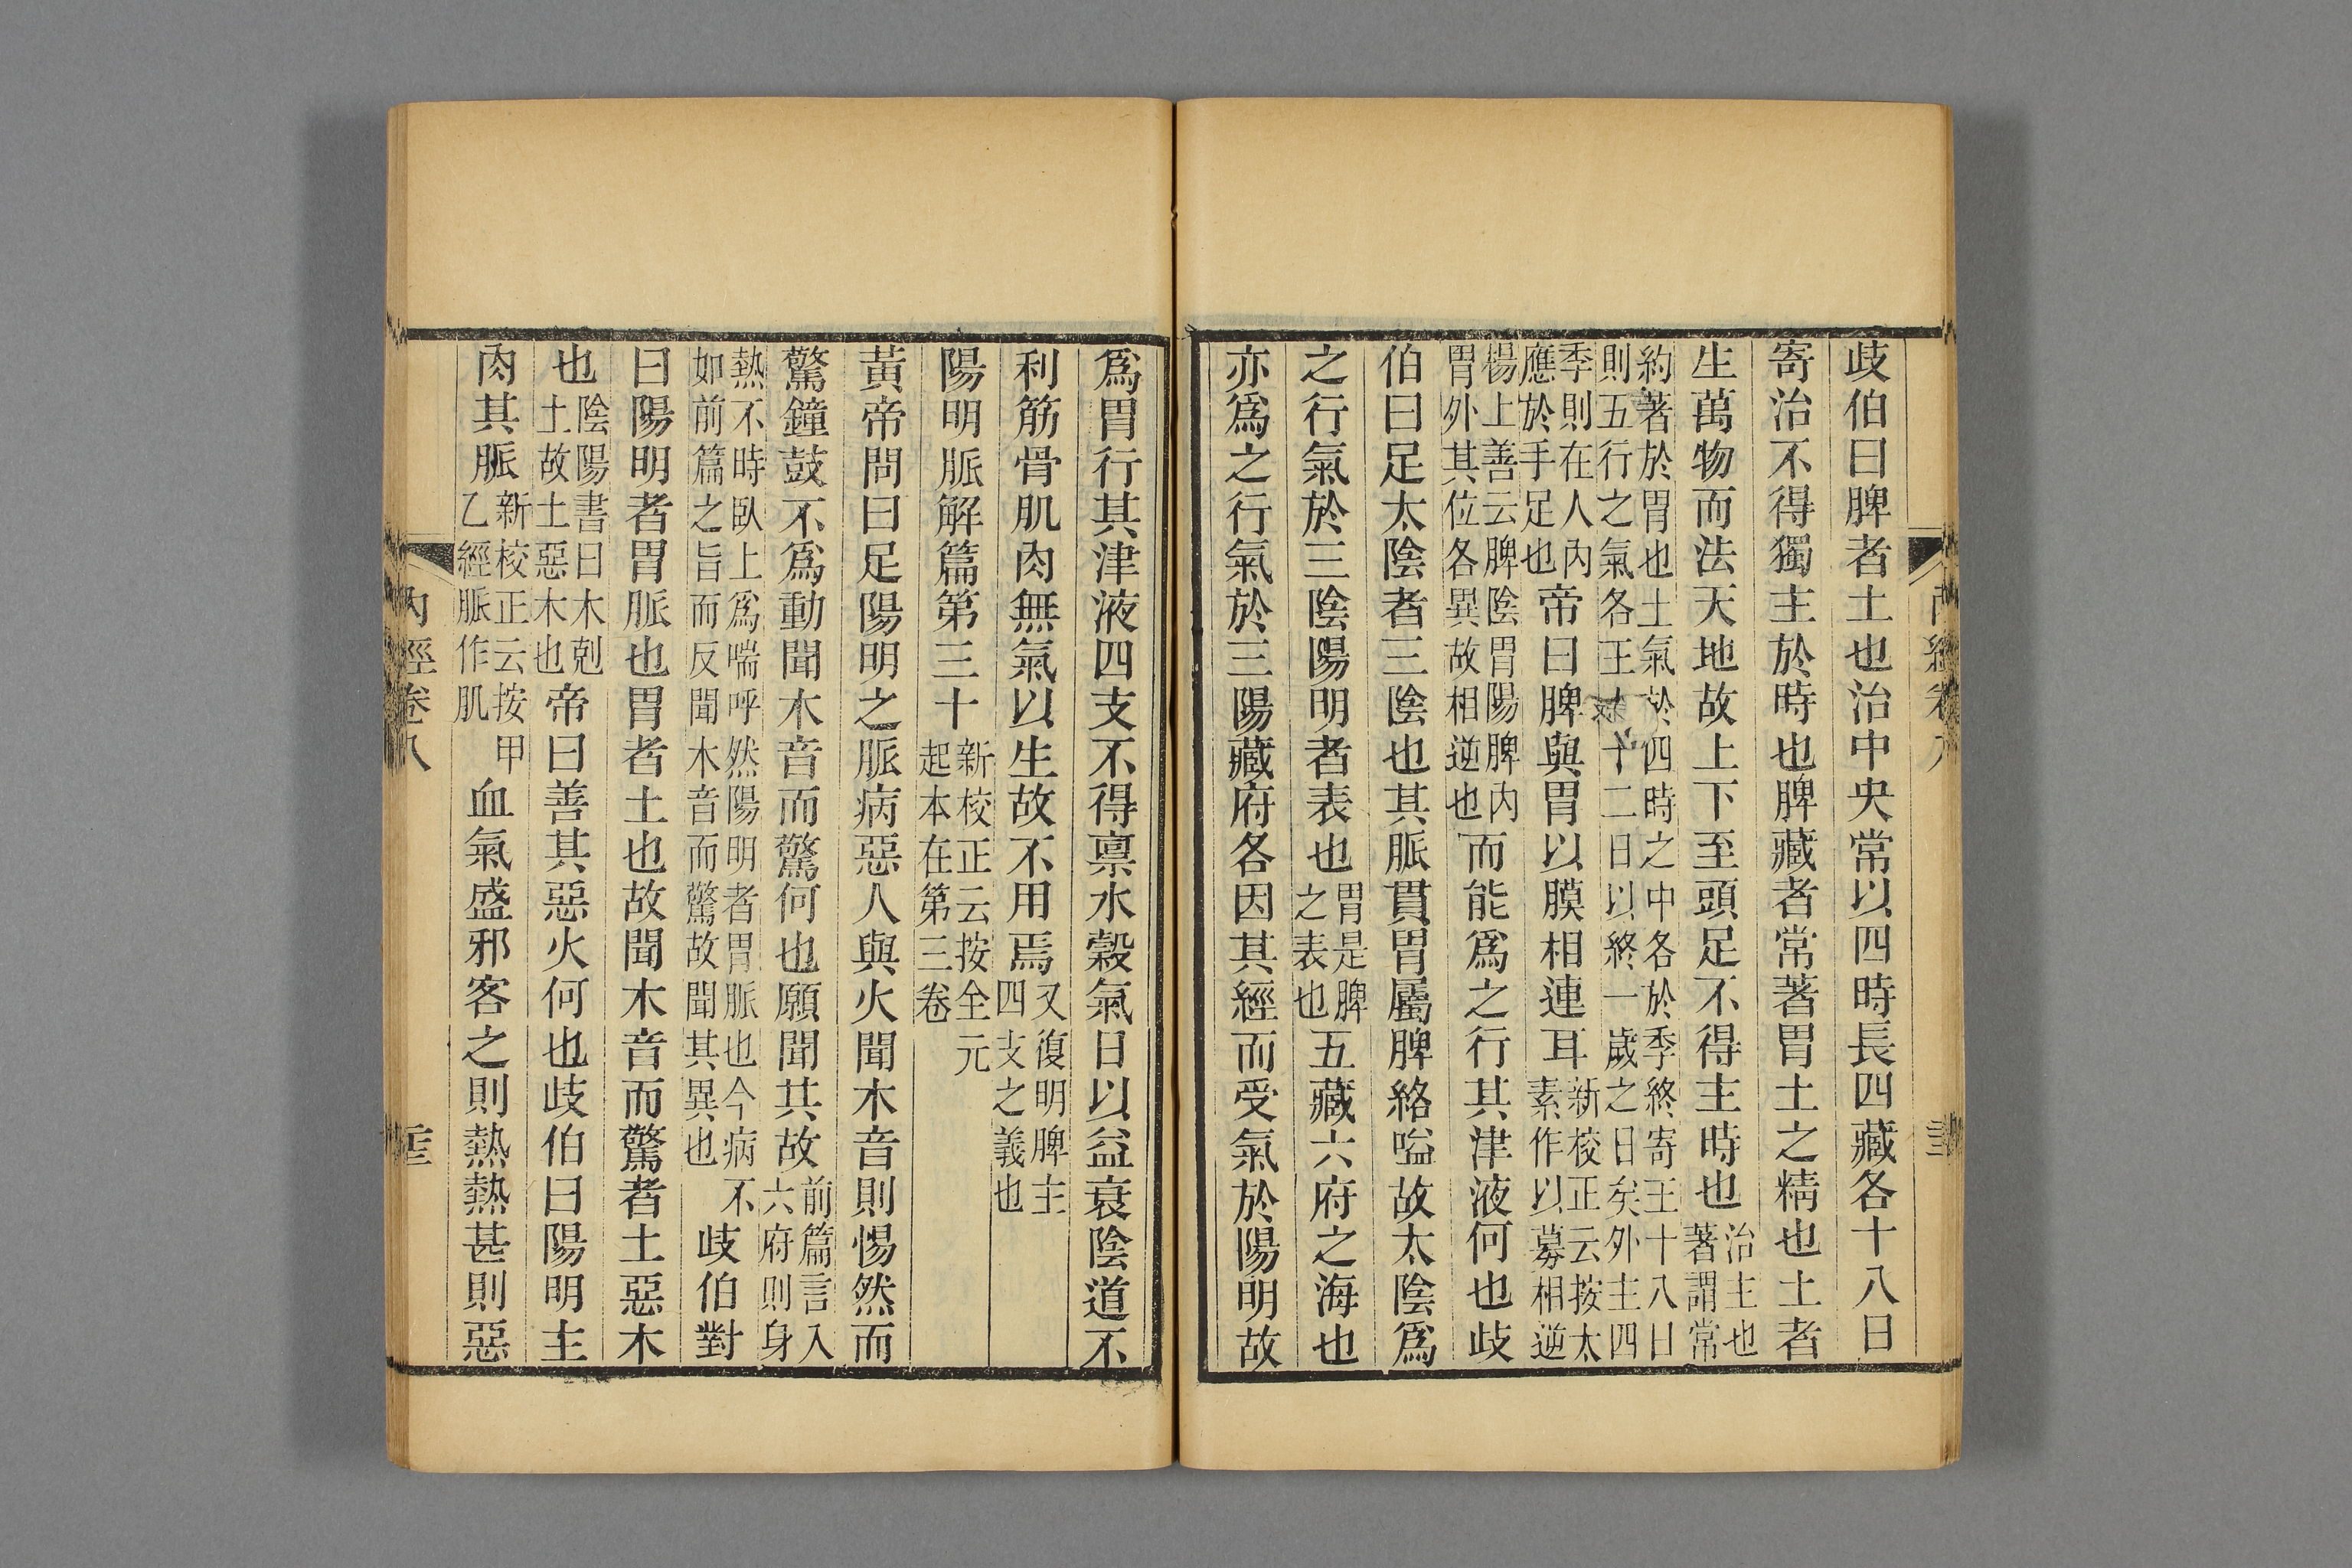 歧伯曰脾者土也治中央常以四時長四藏各十八日
寄治不得獨主於時也脾藏者常著胃土之精也土者
生萬物而法天地故上下至頭足不得主時也治主也著謂常
約著於胃也土氣於四時之中各於季終寄王十八日
則五行之氣各王十二日以終一歲之日矣外主四
季則在人內應於手足也帝曰脾與胃以膜相連耳新校正云按太素作以募相逆
楊上善云脾陰胃陽脾內胃外其位各異故相逆也而能爲之行其津液何也歧
伯曰足太陰者三陰也其脈貫胃屬脾絡嗌故太陰爲
之行氣於三陰陽明者表也胃是脾之表也五藏六府之海也
亦爲之行氣於三陽藏府各因其經而受氣於陽明故
爲胃行其津液四支不得稟水穀氣日以益衰陰道不
利筋骨肌肉無氣以生故不用焉又復明脾主四支之義也
陽明脈解篇第三十新校正云按全元起本在第三卷
黃帝問曰足陽明之脈病惡人與火聞木音則惕然而
驚鐘鼓不爲動聞木音而驚何也願聞其故前篇言入六府則身
熱不時臥上爲喘呼然陽明者胃脈也今病不如前篇之旨而反聞木音而驚故聞其異也歧伯對
曰陽明者胃脈也胃者土也故聞木音而驚者土惡木
也陰陽書曰木剋土故土惡木也帝曰善其惡火何也歧伯曰陽明主
肉其脈新校正云按甲乙經脈作肌血氣盛邪客之則熱熱甚則惡
內經卷八